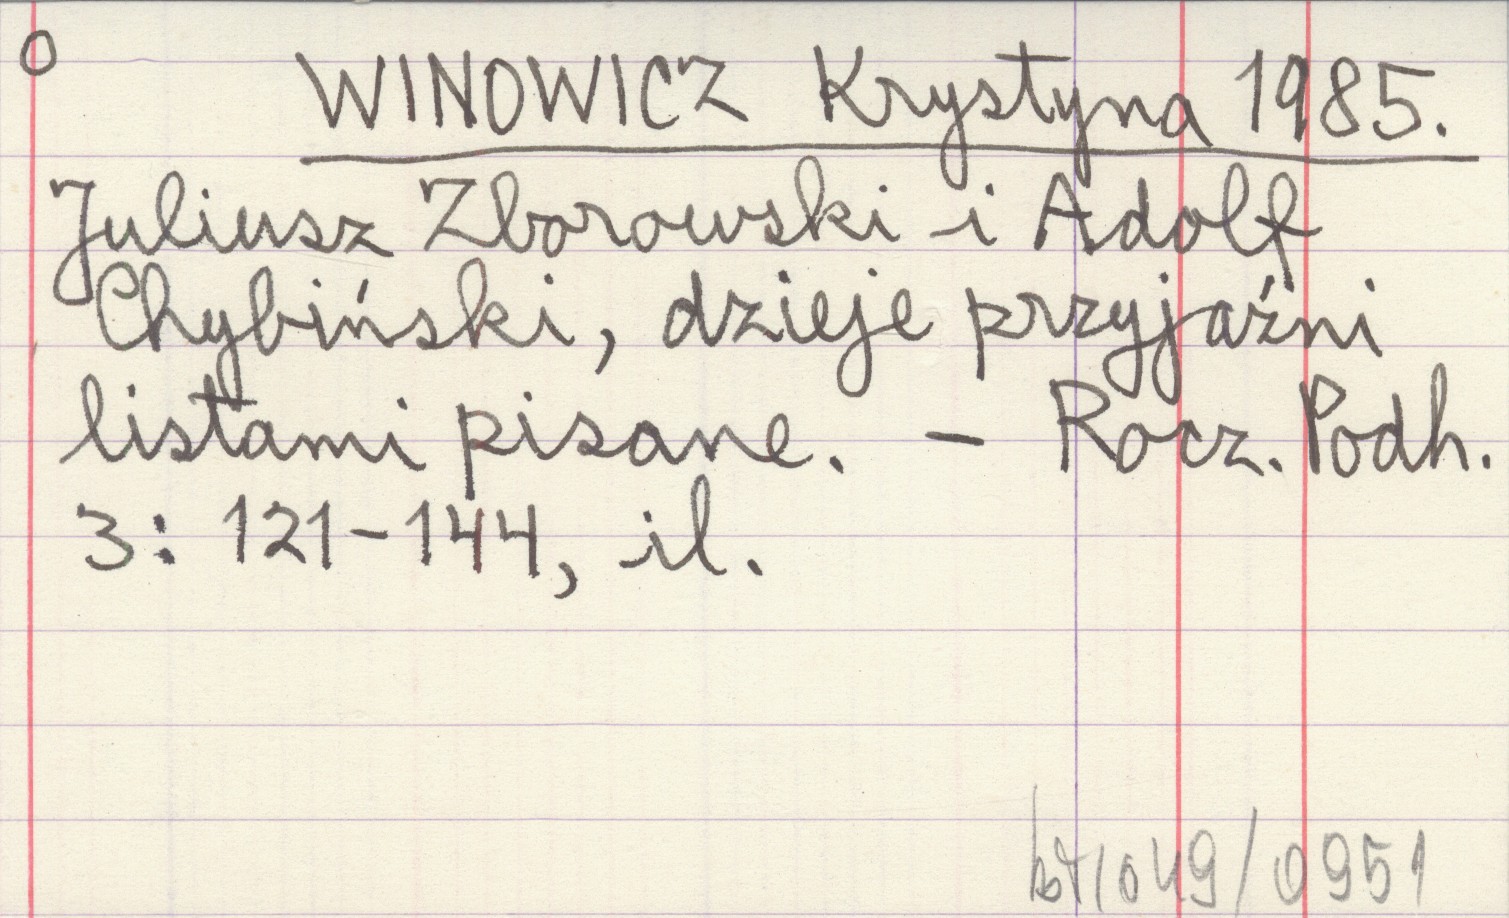 O
WINOWICZ Krystyna 1985.
Juliusz Zborowski i Adolf
Chybiński, dzieje przyjaźni
listami pisane. - Rocz. Podh.
3: 121-144, il.
049/0951